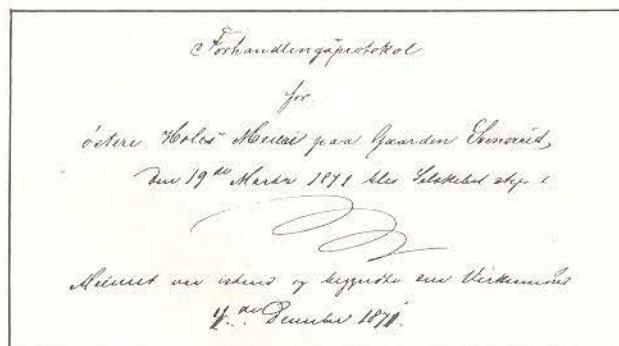 Forhandlingsprotokol
for
østere Holes Meieri paa Gaarden
den 19de Marts 1871 blev Selskabet
Meieriet var og begyndte sin Virksomhed
4de December 1871.